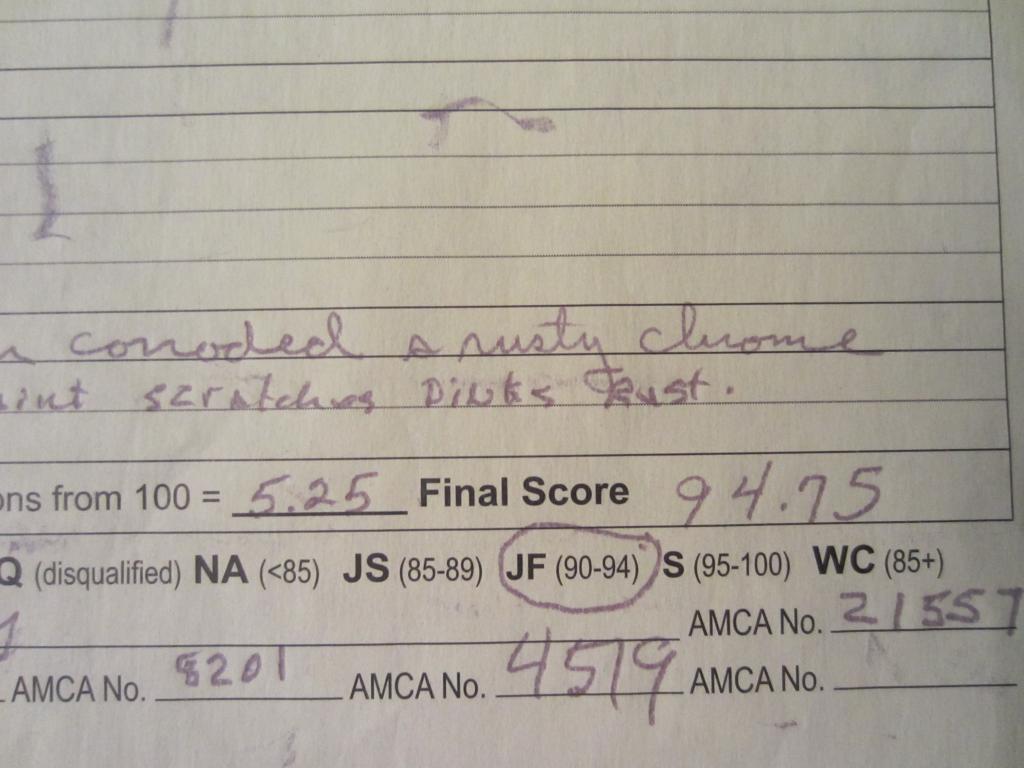 corroded & rusty chrome
scratches Dinks Rust.
ons from 100 = 5.25 Final Score 94.75
Q (disqualified) NA (<85) JS (85-89) JF (90-94) S (95-100) WC (85+)
AMCA No. 21557
AMCA No. 8201 AMCA No. 4519 AMCA No.